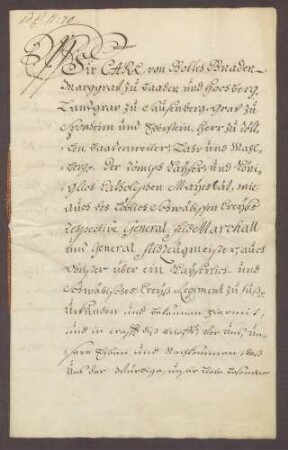 Wir CARL von Gottes Gnaden
Marggraf zu Baaden und Hochberg,
Landgraf zu Sausenberg, Graf zu
Sponheim und Eberstein, Herr zu Röttlen,
Baadenweiler, Lahr und Mahlberg,
der Römisch Kayser und Königlich
Catholischen Mayestät, wie
auch des Löbl. Schwäbischen Creyses
respective General-Feld-Marchall
und General-Feldzeugmeister, auch
Obrister über ein Kayserlich und
Schwäbisches Creyß Regiment zu Fuß,
Urkunden und bekennen hiermit,
und in crafft diß Brieffs, vor uns, unsere
Erben und Nachkommen, daß
Uns der würdige, unser liebe